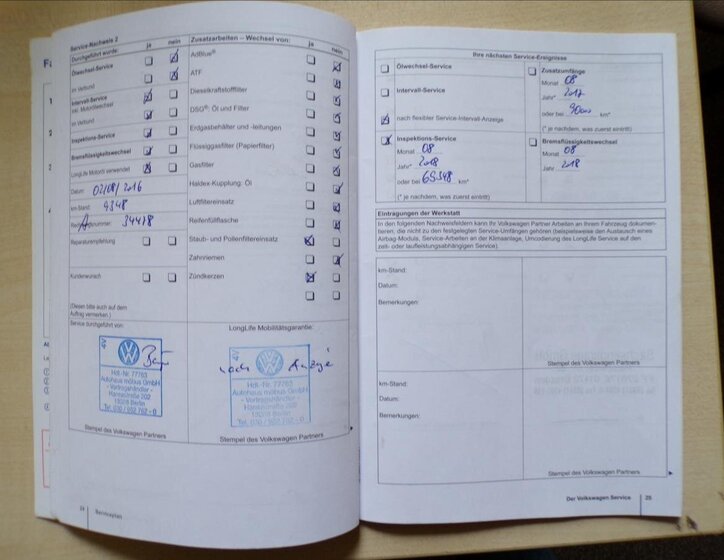 Service-Nachweis 2
Durchgeführt wurde: ja nein
Ölwechsel-Service
im Verbund
Intervall-Service
inkl. Motorölwechsel
im Verbund
Inspektions-Service
Bremsflüssigkeitswechsel
LongLife Motoröl verwendet
Datum: 02/08/2016
km-Stand: 4348
Rechnungsnummer: 34478
Reparaturempfehlung
Kundenwunsch
(Diesen bitte auch auf dem
Auftrag vermerken.)
Zusatzarbeiten – Wechsel von: ja nein
AdBlue®
ATF
Dieselkraftstofffilter
DSG®: Öl und Filter
Erdgasbehälter und -leitungen
Flüssiggasfilter (Papierfilter)
Gasfilter
Haldex-Kupplung: Öl
Luftfiltereinsatz
Reifenfüllflasche
Staub- und Pollenfiltereinsatz
Zahnriemen
Zündkerzen
Service durchgeführt von:
Hdl.-Nr. 77763
Autohaus möbus GmbH
- Vertragshändler -
Hansastraße 202
Stempel des Volkswagen Partners
LongLife Mobilitätsgarantie:
nach Anzeige
Hdl.-Nr. 77763
Autohaus möbus GmbH
- Vertragshändler -
Hansastraße 202
Stempel des Volkswagen Partners
24 Serviceplan
Ihre nächsten Service-Ereignisse
Ölwechsel-Service
Intervall-Service
nach flexibler Service-Intervall-Anzeige
Zusatzumfänge
Monat 08
Jahr* 2017
oder bei 30000 km*
(* je nachdem, was zuerst eintritt)
Inspektions-Service
Monat 08
Jahr* 2018
oder bei 65348 km*
(* je nachdem, was zuerst eintritt)
Bremsflüssigkeitswechsel
Monat 08
Jahr 2018
Eintragungen der Werkstatt
In den folgenden Nachweisfeldern kann Ihr Volkswagen Partner Arbeiten an Ihrem Fahrzeug dokumen-
tieren, die nicht zu den festgelegten Service-Umfängen gehören (beispielsweise den Austausch eines
Airbag-Moduls, Service-Arbeiten an der Klimaanlage, Umcodierung des LongLife Service auf den
zeit- oder laufleistungsabhängigen Service).
km-Stand:
Datum:
Bemerkungen:
Stempel des Volkswagen Partners
km-Stand:
Datum:
Bemerkungen:
Stempel des Volkswagen Partners
Der Volkswagen Service 25